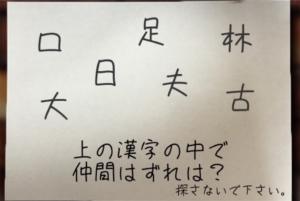 口 足 林
日 夫
大 古
上の漢字の中で
仲間はずれは？
探さないで下さい。